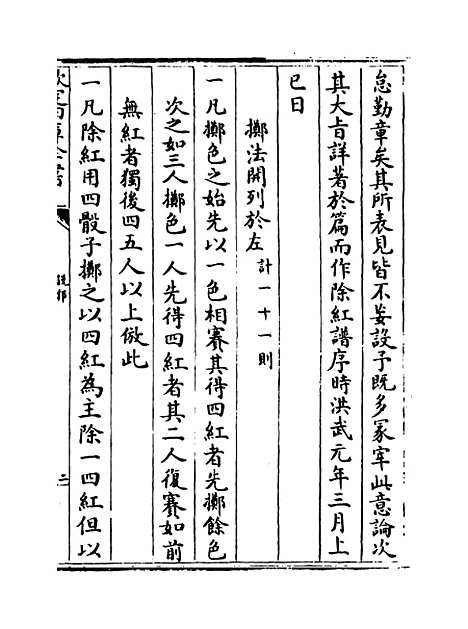 怠勤章矣其所表見皆不妄設予既多冢宰此意論次
其大旨詳著於篇而作除紅譜序時洪武元年三月上
巳日
擲法開列於左計一十一則
一凡擲色之始先以一色相賽其得四紅者先擲餘色
次之如三人擲色一人先得四紅者其二人復賽如前
無紅者獨後四五人以上倣此
一凡除紅用四骰子擲之以四紅為主除一四紅但以
欽定四庫全書
說郛
二